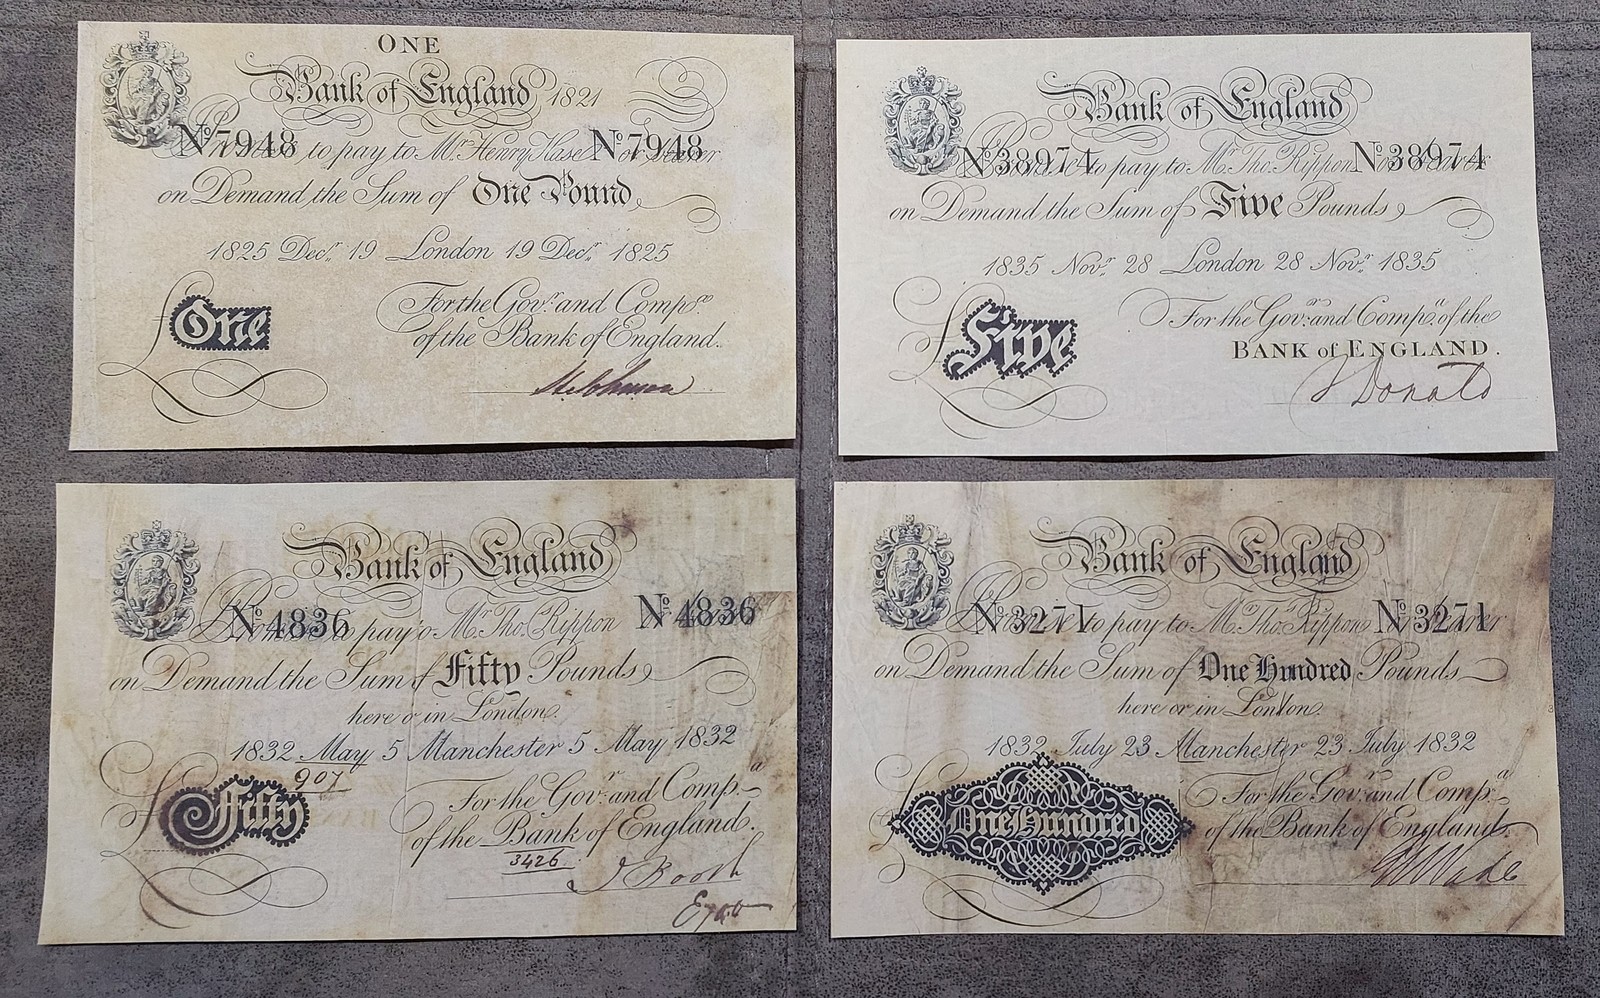 ONE
Bank of England 1821
No. 7948 to pay to Mr. Henry Hase No. 7948 or Bearer
on Demand the Sum of One Pound
1825 Decr. 19 London 19 Decr. 1825
£ One
For the Govr. and Compa.
of the Bank of England.
Bank of England
No. 38974 to pay to Mr. Tho. Rippon No. 38974
on Demand the Sum of Five Pounds
1835 Novr. 28 London 28 Novr. 1835
£ Five
For the Govr. and Compa. of the
BANK of ENGLAND.
J Donato
Bank of England
No. 4836 to pay to Mr. Tho. Rippon No. 4836
on Demand the Sum of Fifty Pounds
here or in London.
1832 May 5 Manchester 5 May 1832
907
£ Fifty
For the Govr. and Compa.
of the Bank of England.
3426
J Booth
Bank of England
I Promise to pay to Mr. Thos. Rippon or Bearer
No. 3271 No. 3271
on Demand the Sum of One Hundred Pounds
here or in London.
1832 July 23 Manchester 23 July 1832
£ One Hundred
For the Govr. and Compa.
of the Bank of England.